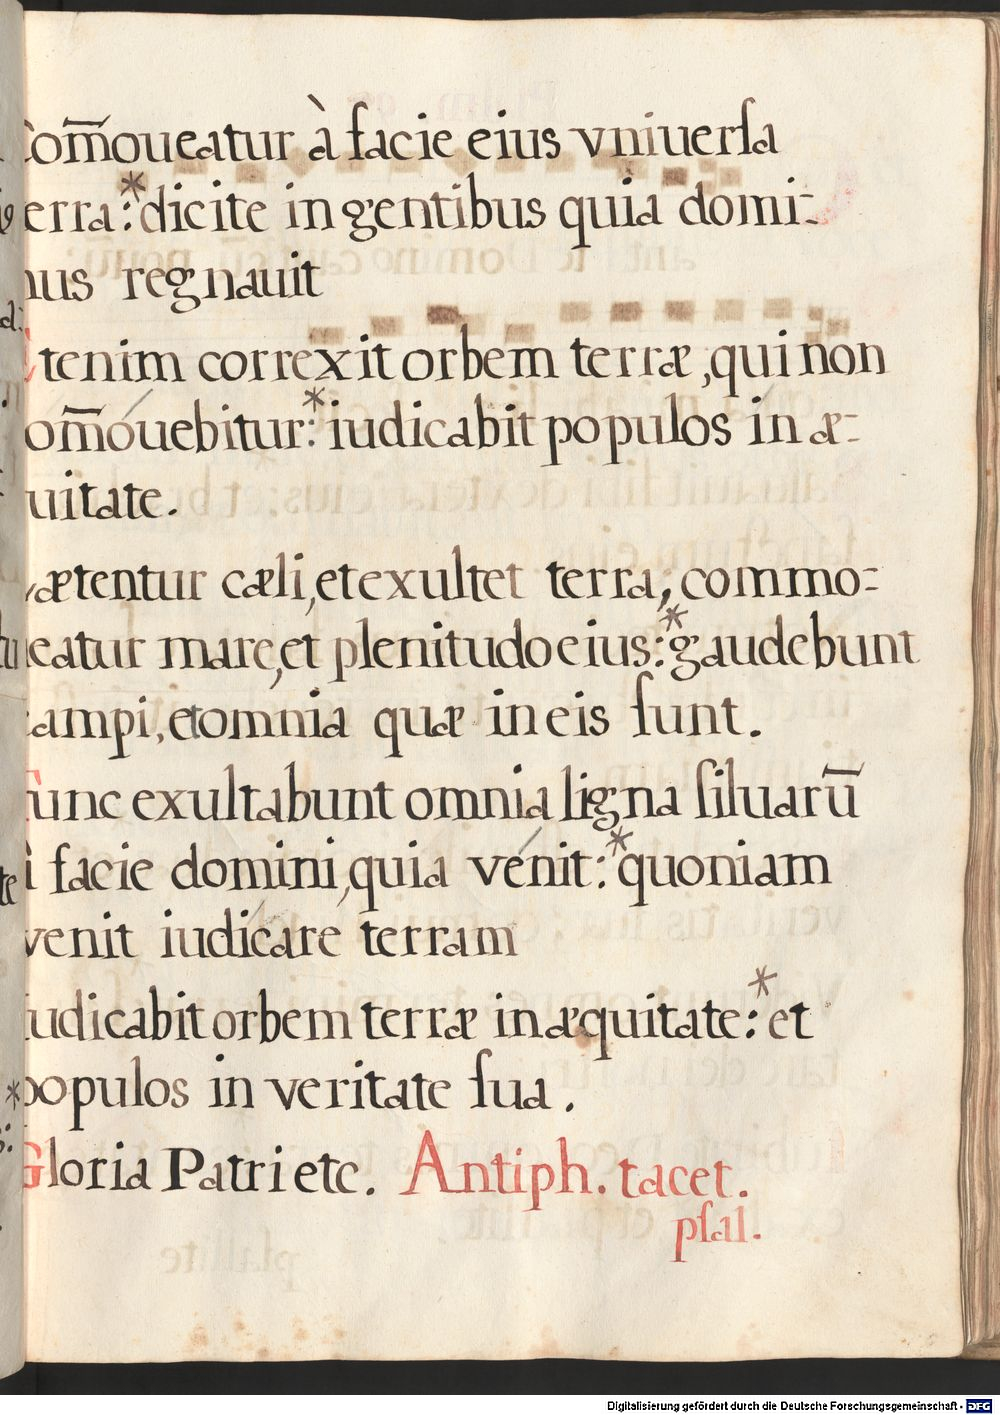 Com̄oueatur à facie eius vniuersa
terra:* dicite in gentibus quia domi-
nus regnauit
Etenim correxit orbem terræ, qui non
com̄óuebitur:* iudicabit populos in æ-
quitate.
Lætentur cæli, et exultet terra, commo-
ueatur mare, et plenitudo eius:* gaudebunt
campi, et omnia quæ in eis sunt.
Tunc exultabunt omnia ligna siluarū
à facie domini, quia vénit:* quoniam
venit iudicare terram
Iudicabit orbem terræ in æquitate:* et
populos in veritate sua.
Gloria Patri etc. Antiph. tacet.
psal.
Digitalisierung gefördert durch die Deutsche Forschungsgemeinschaft - DFG